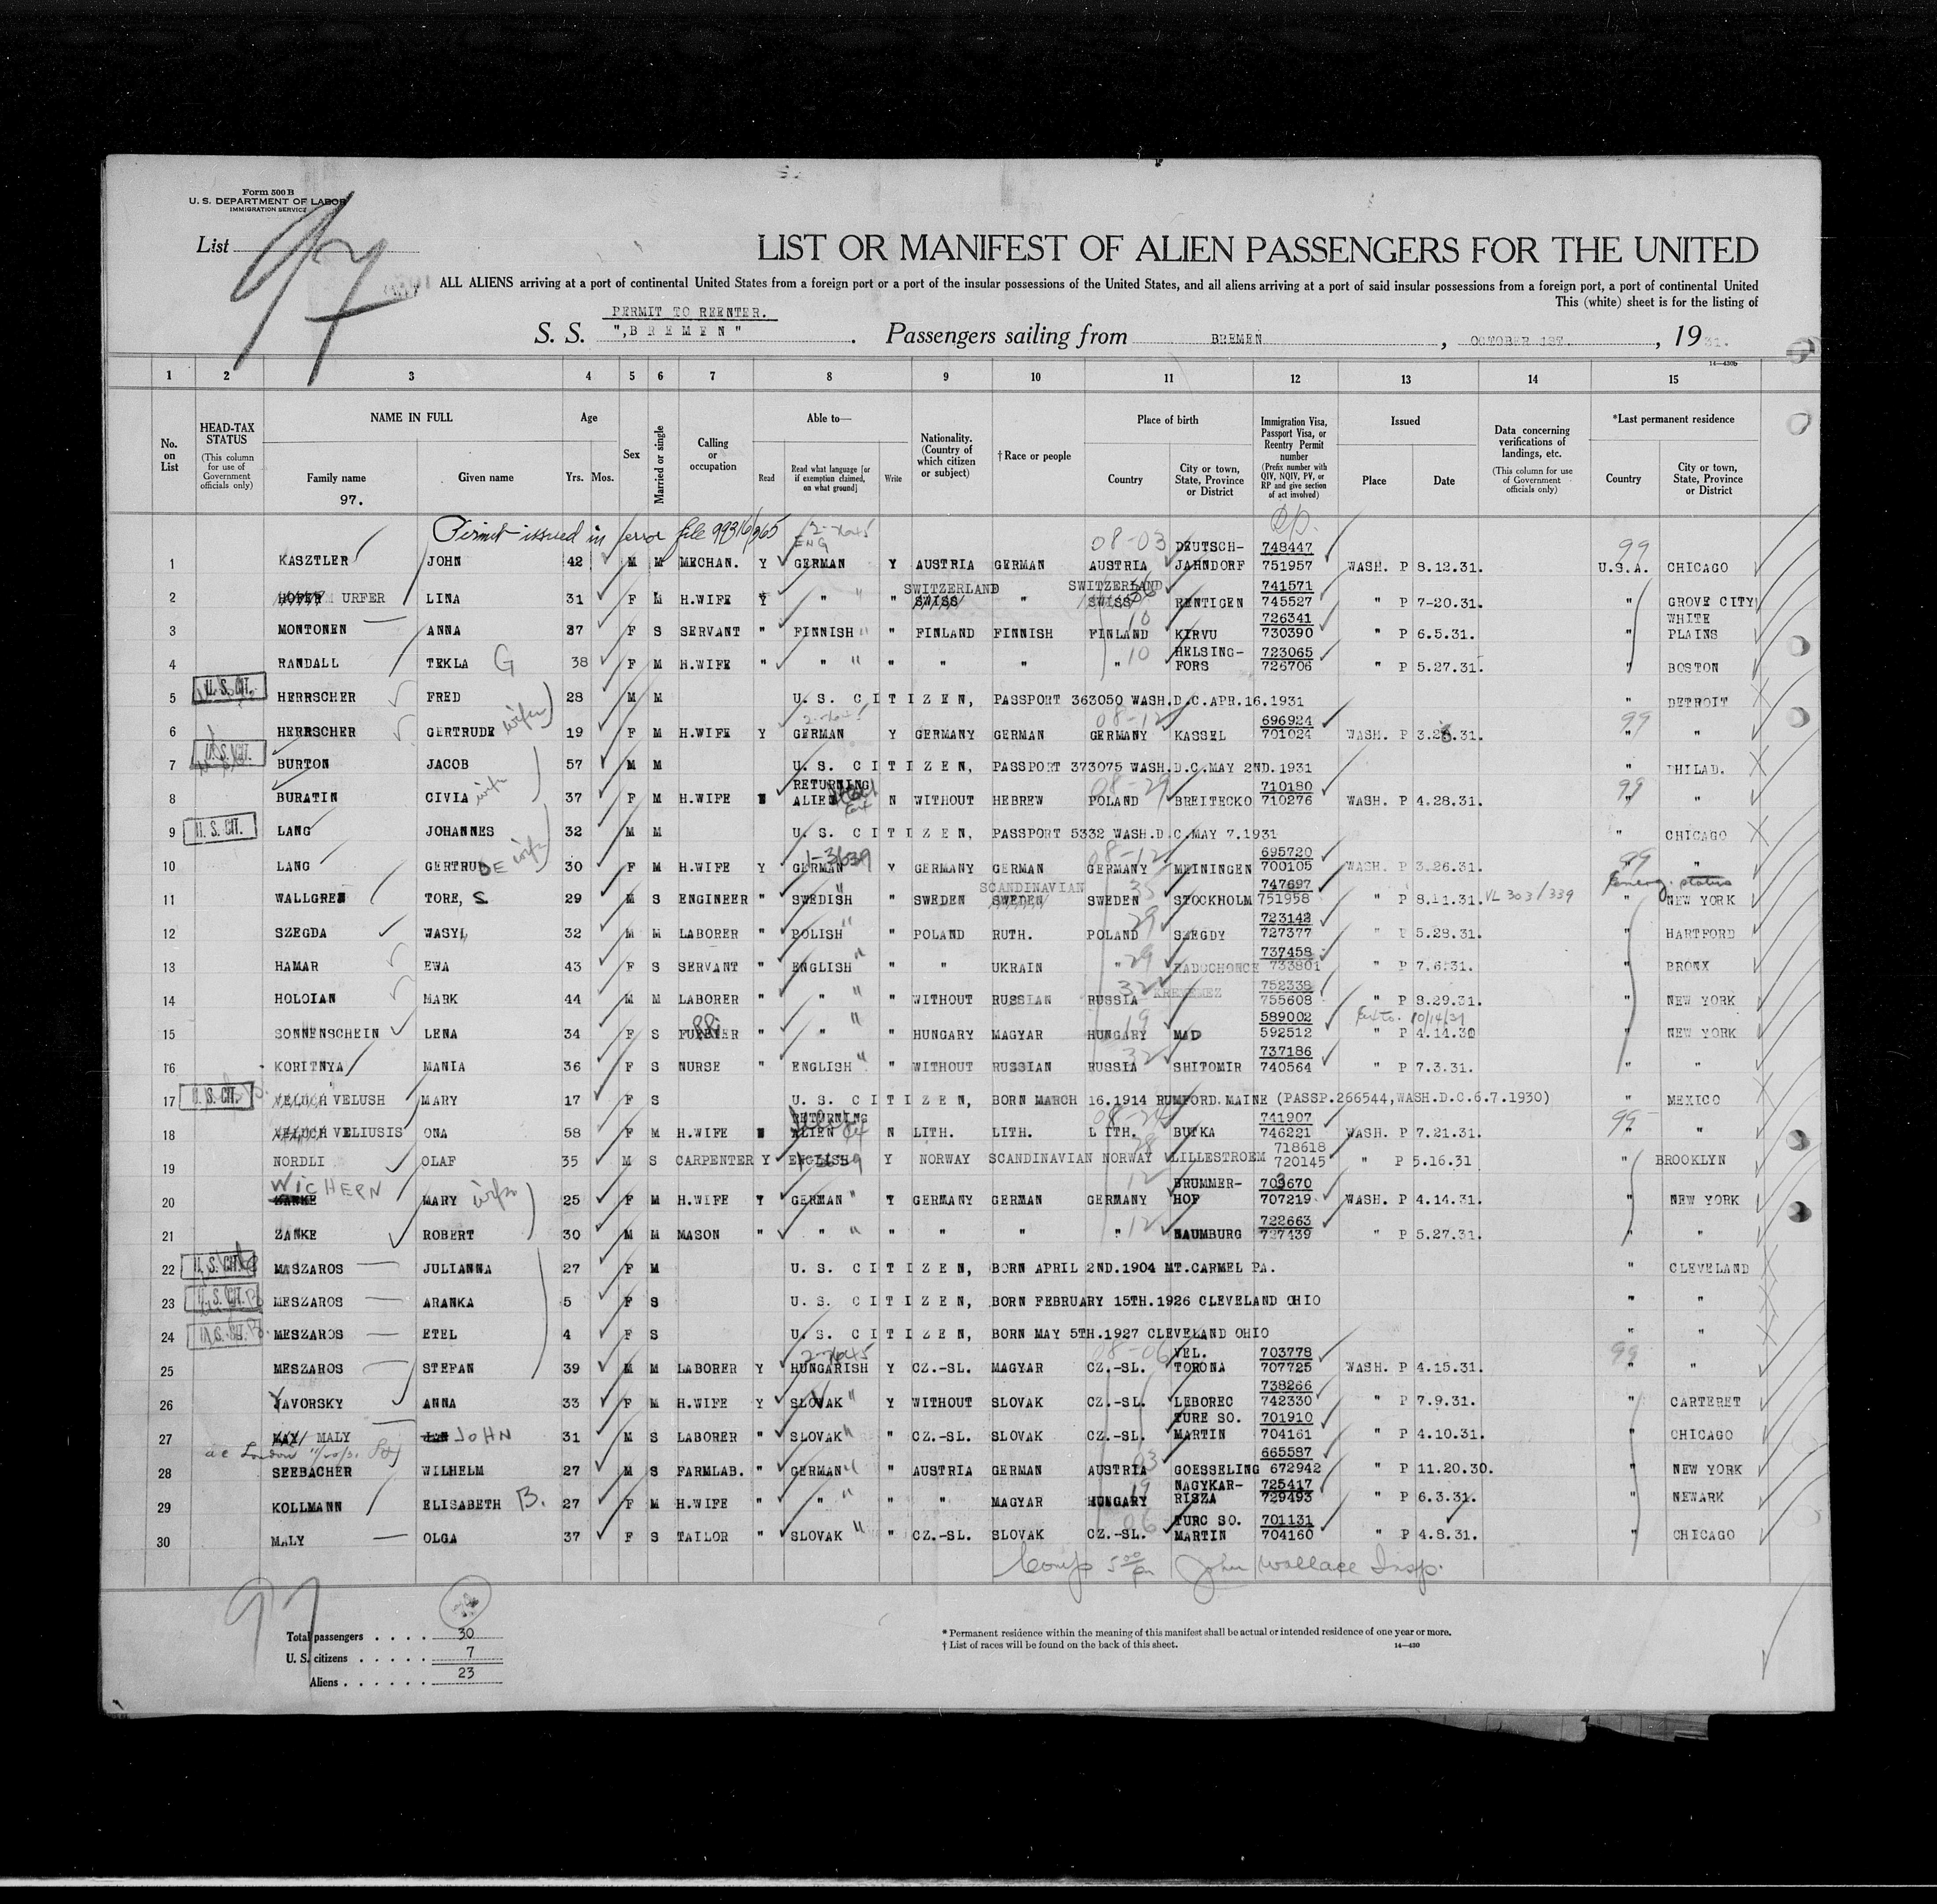 Form 500 B
U. S. DEPARTMENT OF LABOR
IMMIGRATION SERVICE
List 97
LIST OR MANIFEST OF ALIEN PASSENGERS FOR THE UNITED
ALL ALIENS arriving at a port of continental United States from a foreign port or a port of the insular possessions of the United States, and all aliens arriving at a port of said insular possessions from a foreign port, a port of continental United
This (white) sheet is for the listing of
PERMIT TO REENTER.
S. S. ",BREMEN". Passengers sailing from BREMEN, OCTOBER 1ST., 1931.
14—430b
1 2 3 4 5 6 7 8 9 10 11 12 13 14 15
No. on List
HEAD-TAX STATUS (This column for use of Government officials only)
NAME IN FULL Family name Given name
97.
Age Yrs. Mos.
Sex
Married or single
Calling or occupation
Able to— Read Read what language [or if exemption claimed, on what ground] Write
Nationality. (Country of which citizen or subject)
†Race or people
Place of birth Country City or town, State, Province or District
Immigration Visa, Passport Visa, or Reentry Permit number (Prefix number with QIV, NQIV, PV, or RP and give section of act involved)
Issued Place Date
Data concerning verifications of landings, etc. (This column for use of Government officials only)
*Last permanent residence Country City or town, State, Province or District
Permit issued in error file 99316/365
1 KASZTLER JOHN 42 M M MECHAN. Y ENG GERMAN Y AUSTRIA GERMAN 08-03 AUSTRIA DEUTSCH-JAHNDORF 748447 751957 WASH. P 8.12.31. 99 U.S.A. CHICAGO
2 URFER LINA 31 F M H.WIFE Y " " SWITZERLAND SWISS " SWITZERLAND SWISS RENTIGEN 741571 745527 " P 7-20.31. " GROVE CITY
3 MONTONEN ANNA 37 F S SERVANT " FINNISH " " FINLAND FINNISH 10 FINLAND KIRVU 726341 730390 " P 6.5.31. " WHITE PLAINS
4 RANDALL TEKLA G 38 F M H.WIFE " " " " " " 10 " HELSING-FORS 723065 726706 " P 5.27.31. " BOSTON
5 U. S. CIT. HERRSCHER FRED 28 M M U. S. CITIZEN, PASSPORT 363050 WASH.D.C.APR.16.1931 " DETROIT
6 HERRSCHER GERTRUDE wife 19 F M H.WIFE Y GERMAN Y GERMANY GERMAN 08-12 GERMANY KASSEL 696924 701024 WASH. P 99 " "
7 U. S. CIT. BURTON JACOB 57 M M U. S. CITIZEN, PASSPORT 373075 WASH.D.C.MAY 2ND.1931 " PHILAD.
8 BURATIN CIVIA wife 37 F M H.WIFE N RETURNING ALIEN N WITHOUT HEBREW 08-29 POLAND BREITECKO 710180 710276 WASH. P 4.28.31. 99 " "
9 U. S. CIT. LANG JOHANNES 32 M M U. S. CITIZEN, PASSPORT 5332 WASH.D.C.MAY 7.1931 " CHICAGO
10 LANG GERTRUDE wife 30 F M H.WIFE Y GERMAN Y GERMANY GERMAN 08-12 GERMANY MEININGEN 695720 700105 WASH. P 3.26.31. 99 " "
11 WALLGREN TORE, S 29 M S ENGINEER " SWEDISH " " SWEDEN SCANDINAVIAN SWEDEN 35 SWEDEN STOCKHOLM 747697 751958 " P 8.11.31. VL 303/339 " NEW YORK
12 SZEGDA WASYL 32 M M LABORER " POLISH " " POLAND RUTH. 29 POLAND SZEGDY 723142 727377 " P 5.28.31. " HARTFORD
13 HAMAR EWA 43 F S SERVANT " ENGLISH " " " UKRAIN 29 " RADOCHONCE 737458 733801 " P 7.6.31. " BRONX
14 HOLOIAN MARK 44 M M LABORER " " " " WITHOUT RUSSIAN 32 RUSSIA KREMENEZ 752338 755608 " P 8.29.31. " NEW YORK
15 SONNENSCHEIN LENA 34 F S " " " " HUNGARY MAGYAR 19 HUNGARY MAD 589002 592512 10/14/31 " P 4.14.30 " NEW YORK
16 KORITNYA MANIA 36 F S NURSE " ENGLISH " " WITHOUT RUSSIAN 32 RUSSIA SHITOMIR 737186 740564 " P 7.3.31. " "
17 U. S. CIT. VELUCH VELUSH MARY 17 F S U. S. CITIZEN, BORN MARCH 16.1914 RUMFORD.MAINE (PASSP.266544,WASH.D.C.6.7.1930) " MEXICO
18 VELUCH VELIUSIS ONA 58 F M H.WIFE N RETURNING ALIEN N LITH. LITH. 08-24 LITH. BUTKA 741907 746221 WASH. P 7.21.31. 99 " "
19 NORDLI OLAF 35 M S CARPENTER Y ENGLISH Y NORWAY SCANDINAVIAN 28 NORWAY LILLESTROEM 718618 720145 " P 5.16.31 " BROOKLYN
20 WICHERN ZANKE MARY wife 25 F M H.WIFE Y GERMAN " Y GERMANY GERMAN 12 GERMANY BRUMMER-HOF 703670 707219 WASH. P 4.14.31. " NEW YORK
21 ZANKE ROBERT 30 M M MASON " " " " " " 12 " NAUMBURG 722663 727439 " P 5.27.31. " "
22 U. S. CIT. MASZAROS JULIANNA 27 F M U. S. CITIZEN, BORN APRIL 2ND.1904 MT.CARMEL PA. " CLEVELAND
23 U. S. CIT. MESZAROS ARANKA 5 F S U. S. CITIZEN, BORN FEBRUARY 15TH.1926 CLEVELAND OHIO " "
24 U. S. CIT. MESZAROS ETEL 4 F S U. S. CITIZEN, BORN MAY 5TH.1927 CLEVELAND OHIO " "
25 MESZAROS STEFAN 39 M M LABORER Y HUNGARISH Y CZ.-SL. MAGYAR 08-06 CZ.-SL. VEL. TORONA 703778 707725 WASH. P 4.15.31. 99 " "
26 YAVORSKY ANNA 33 F M H.WIFE Y SLOVAK " Y WITHOUT SLOVAK CZ.-SL. LEBOREC 738266 742330 " P 7.9.31. " CARTERET
27 MALY JOHN 31 M S LABORER " SLOVAK " " CZ.-SL. SLOVAK CZ.-SL. TURC SO. MARTIN 701910 704161 " P 4.10.31. " CHICAGO
28 SEEBACHER WILHELM 27 M S FARMLAB. " GERMAN " " AUSTRIA GERMAN 03 AUSTRIA GOESSELING 665587 672942 " P 11.20.30. " NEW YORK
29 KOLLMANN ELISABETH B. 27 F M H.WIFE " " " " " MAGYAR 19 HUNGARY NAGYKAR-RISZA 725417 729493 " P 6.3.31. " NEWARK
30 MALY OLGA 37 F S TAILOR " SLOVAK " " CZ.-SL. SLOVAK 06 CZ.-SL. TURC SO. MARTIN 701131 704160 " P 4.8.31. " CHICAGO
John Wallace Insp.
97
Total passengers .... 30
U. S. citizens ..... 7
Aliens ...... 23
* Permanent residence within the meaning of this manifest shall be actual or intended residence of one year or more.
† List of races will be found on the back of this sheet. 14—430